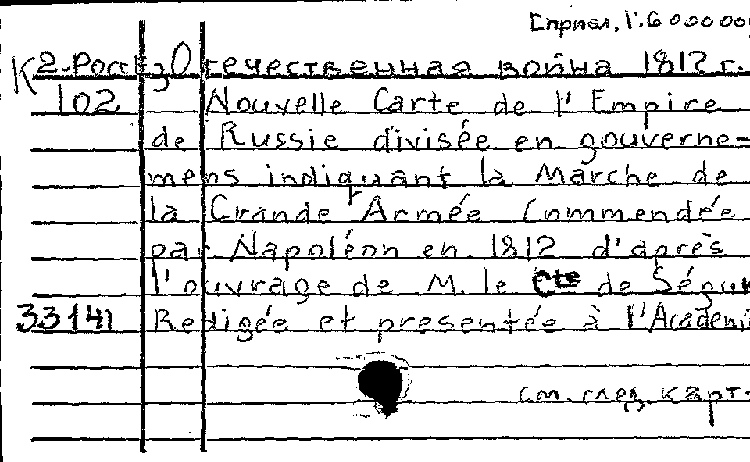 1:6000000
К 2-Росс Отечественная война 1812 г.
102 Nouvelle Carte de l'Empire
de Russie divisée en gouverne-
mens indiquant la Marche de
la Grande Armée Commendée
par Napoléon en 1812 d'après
l'ouvrage de M. le Cte de Ségur
33141 Redigée et presentée à l'Academi
см. след. карт.